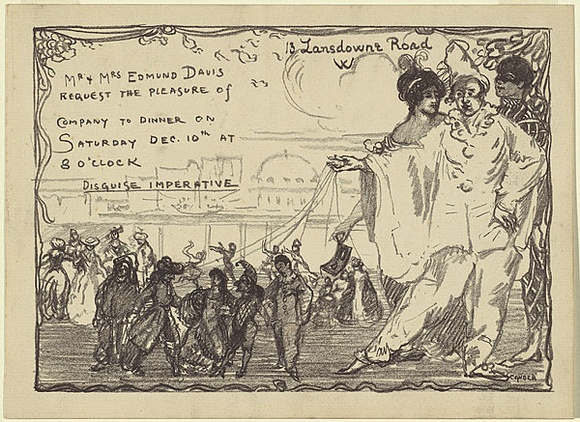 13 Lansdowne Road
W
Mr & Mrs Edmund Davis
request the pleasure of
company to dinner on
Saturday Dec. 10th at
8 o'clock
Disguise imperative
Conder